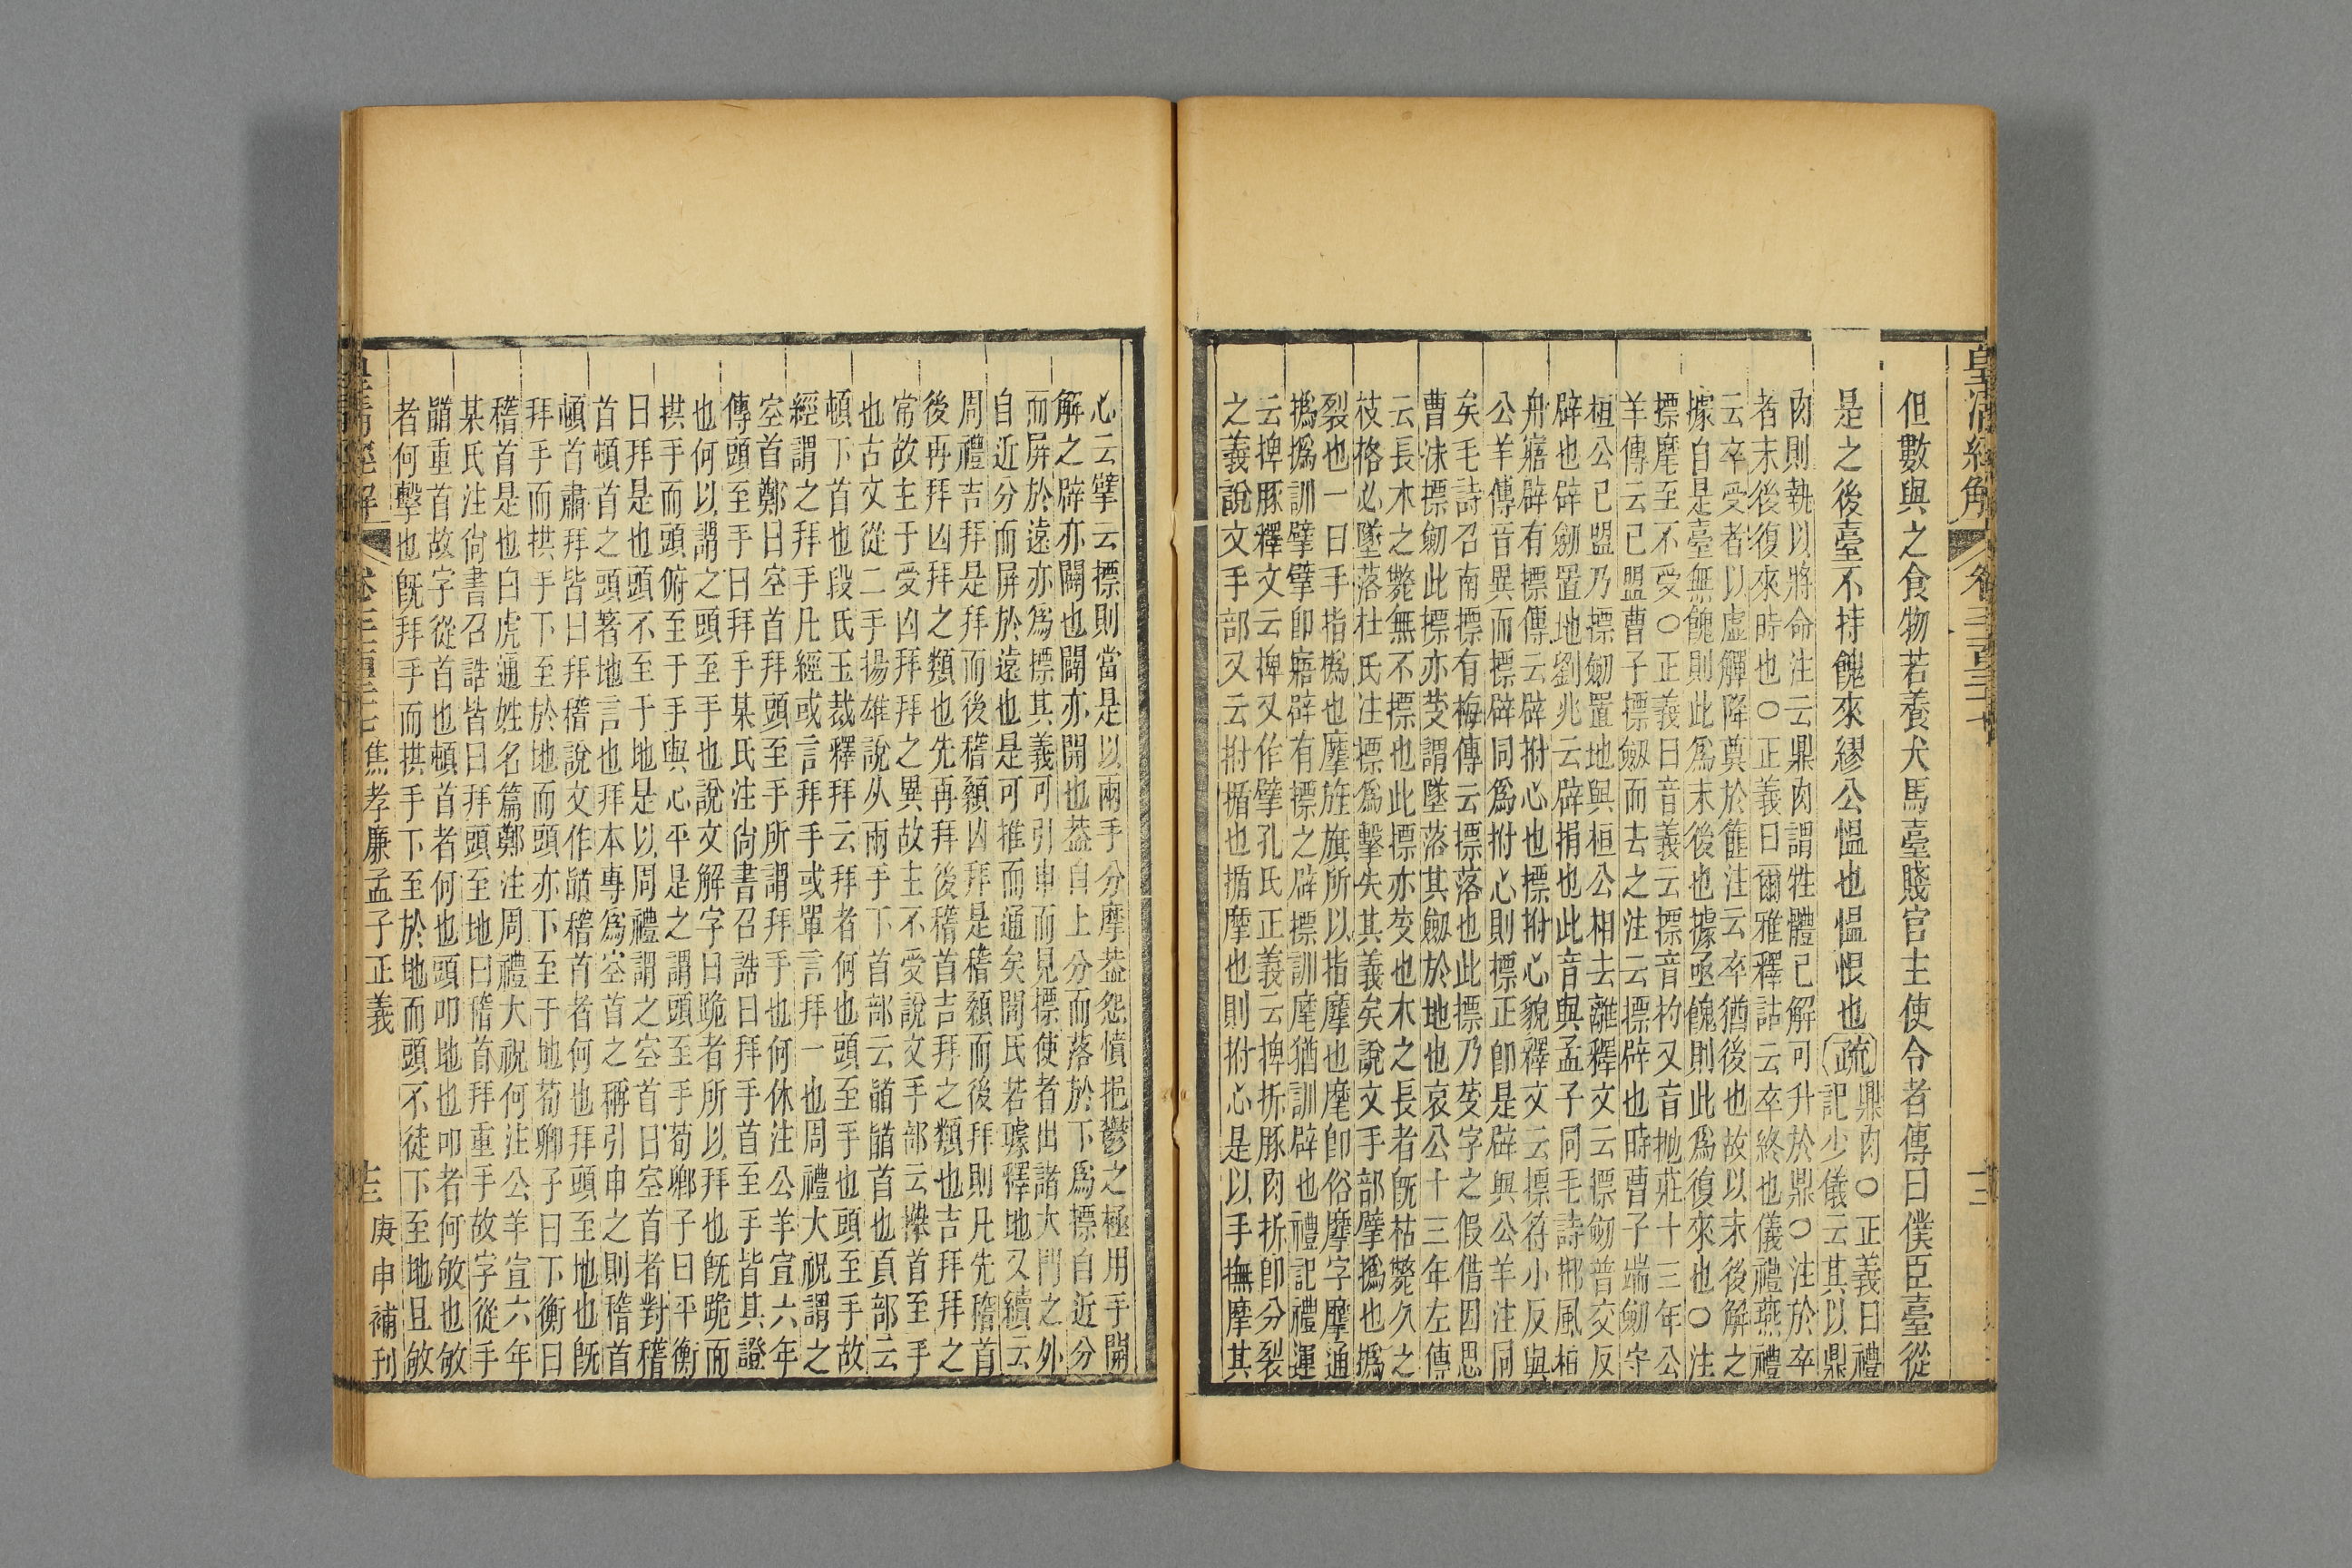 皇清經解
但數與之食物若養犬馬臺賤官主使令者傳曰僕臣臺從
是之後臺不持餽來繆公慍也慍恨也〔疏〕鼎肉○正義曰禮
記少儀云其以鼎
肉則執以將命注云鼎肉謂牲體已解可升於鼎○注於卒
者末後復來時也○正義曰爾雅釋詁云卒終也儀禮燕禮
云卒受者以虛觶降奠於篚注云卒猶後也故以末後解之
據自是臺無餽則此爲末後也據亟餽則此爲復來也○注
摽麾至不受○正義曰音義云摽音杓又音抛莊十三年公
羊傳云已盟曹子摽劔而去之注云摽辟也時曹子端劔守
桓公已盟乃摽劔置地與桓公相去離釋文云摽劔普交反
辟也辟劔置地劉兆云辟捐也此音與孟子同毛詩邶風柏
舟寤辟有摽傳云辟拊心也摽拊心貌釋文云摽符小反與
公羊傳音異而摽辟同爲拊心則摽正卽是辟與公羊注同
矣毛詩召南摽有梅傳云摽落也此摽乃芟字之假借因思
曹沬摽劔此摽亦芟謂墜落其劔於地也哀公十三年左傳
云長木之斃無不摽也此摽亦芟也木之長者旣枯斃久之
枝格必墜落杜氏注摽爲擊失其義矣說文手部擘撝也撝
裂也一曰手指撝也摩旌旗所以指摩也麾卽俗摩字摩通
撝撝訓擘擘卽寤辟有摽之辟摽訓麾猶訓辟也禮記禮運
云捭豚釋文云捭又作擘孔氏正義云捭拆豚肉拆卽分裂
之義說文手部又云拊揗也揗摩也則拊心是以手撫摩其
心云擘云摽則當是以兩手分摩葢怨憤挹鬱之極用手開
解之辟亦闢也闢亦開也葢自上分而落於下爲摽自近分
而屛於遠亦爲摽其義可引申而見摽使者出諸大門之外
自近分而屛於遠也是可推而通矣閻氏若璩釋地又續云
周禮吉拜是拜而後稽顙凶拜是稽顙而後拜則凡先稽首
後再拜凶拜之類也先再拜後稽首吉拜之類也吉拜拜之
常故主于受凶拜拜之異故主不受說文手部云𢷎首至手
也古文從二手揚雄說从兩手下首部云䭫䭫首也頁部云
頓下首也段氏玉裁釋拜云拜者何也頭至手也頭至手故
經謂之拜手凡經或言拜手或單言拜一也周禮大祝謂之
空首鄭曰空首拜頭至手所謂拜手也何休注公羊宣六年
傳頭至手曰拜手某氏注尙書召誥曰拜手首至手皆其證
也何以謂之頭至手也說文解字曰跪者所以拜也旣跪而
拱手而頭俯至于手與心平是之謂頭至手荀卿子曰平衡
曰拜是也頭不至于地是以周禮謂之空首曰空首者對稽
首頓首之頭著地言也拜本專爲空首之稱引申之則稽首
頓首肅拜皆曰拜稽說文作䭫稽首者何也拜頭至地也旣
拜手而拱手下至於地而頭亦下至于地荀卿子曰下衡曰
稽首是也白虎通姓名篇鄭注周禮大祝何注公羊宣六年
某氏注尙書召誥皆曰拜頭至地曰稽首拜重手故字從手
䭫重首故字從首也頓首者何也頭叩地也叩者何敂也敂
者何擊也旣拜手而拱手下至於地而頭不徒下至地且敂
焦孝廉孟子正義
庚申補刊